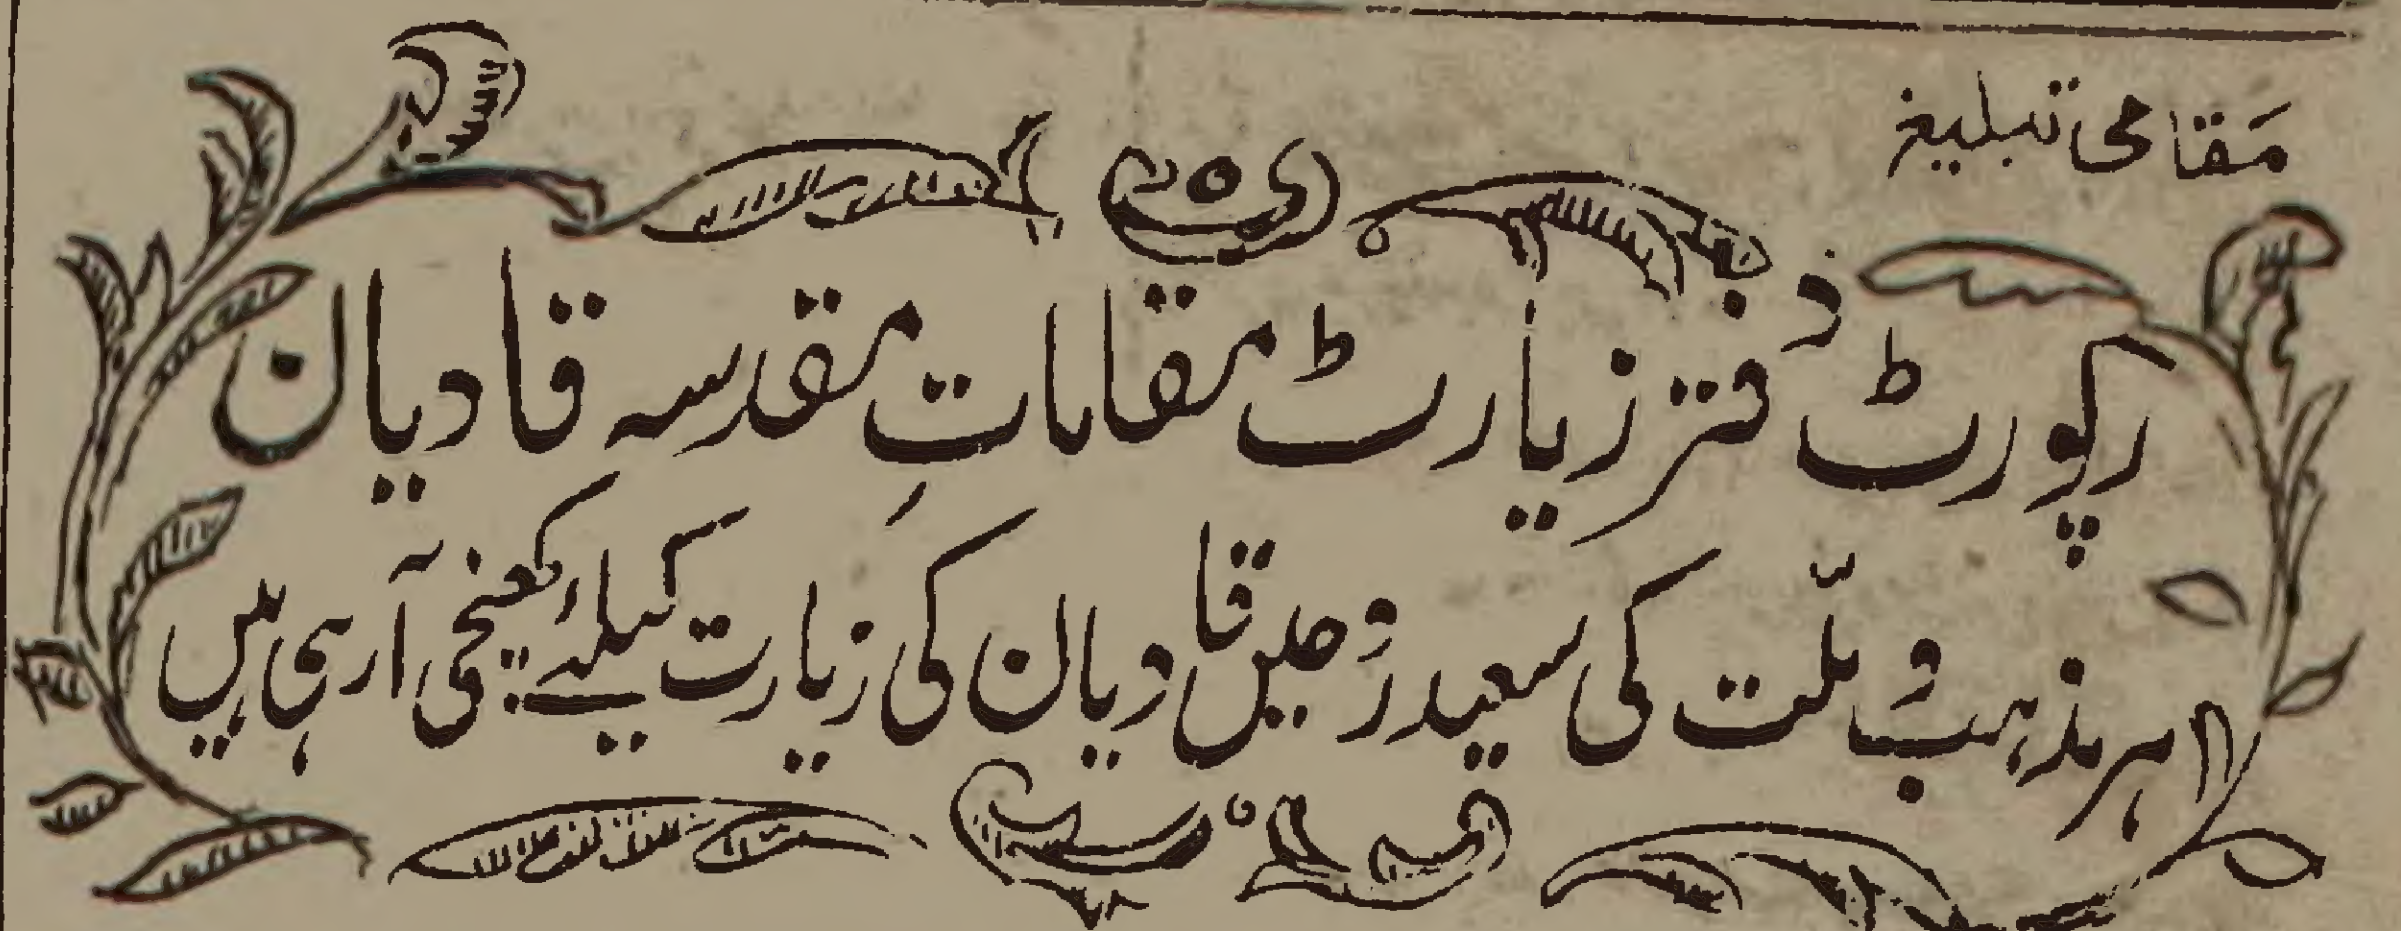 مقامی تبلیغ
رپورٹ دفتر زیارٹ مقاماتِ مقدسہ قادیان
ہر مذہب و ملّت کی سعید رُوحیں قادیان کی زیارت کیلئے کھنچی آ رہی ہیں